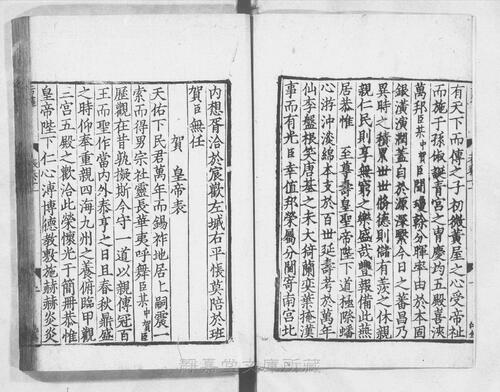 有天下而傳之子初微黃屋之心受帝祉
而施于孫俶誕青宮之胄慶均五殿喜浹
萬邦臣某中賀臣聞瓊榦分輝率由於本固
銀潢演潤蓋自於源深繄今日之蕃昌乃
異時之積累世世脩德則儲有羨之休親
親仁民則享無窮之樂盛哉豐報備此燕
居恭惟 至尊壽皇聖帝陛下道極際蟠
心游沖漠綿本支於百世延壽考於萬年
仙李盤根笑唐基之未大猗蘭奕葉掩漢
事而有光臣幸值邦榮屬分閫寄南宮北
内想胥洽於宸歡左城右平悵莫陪於班
賀臣無任
賀 皇帝表
天佑下民君萬年而錫祚地居上嗣震一
索而得男宗社靈長華夷呼舞臣某中賀臣
歷觀在昔孰擬斯今守一道以親傳冠百
王而聖作當内外泰亨之日且春秋鼎盛
之時仰奉重親四海九州之養俯臨甲觀
三宮五殿之歡洽此榮懷光于簡冊恭惟
皇帝陛下仁心溥博德教敷施赫赫炎炎
静嘉堂文庫所藏